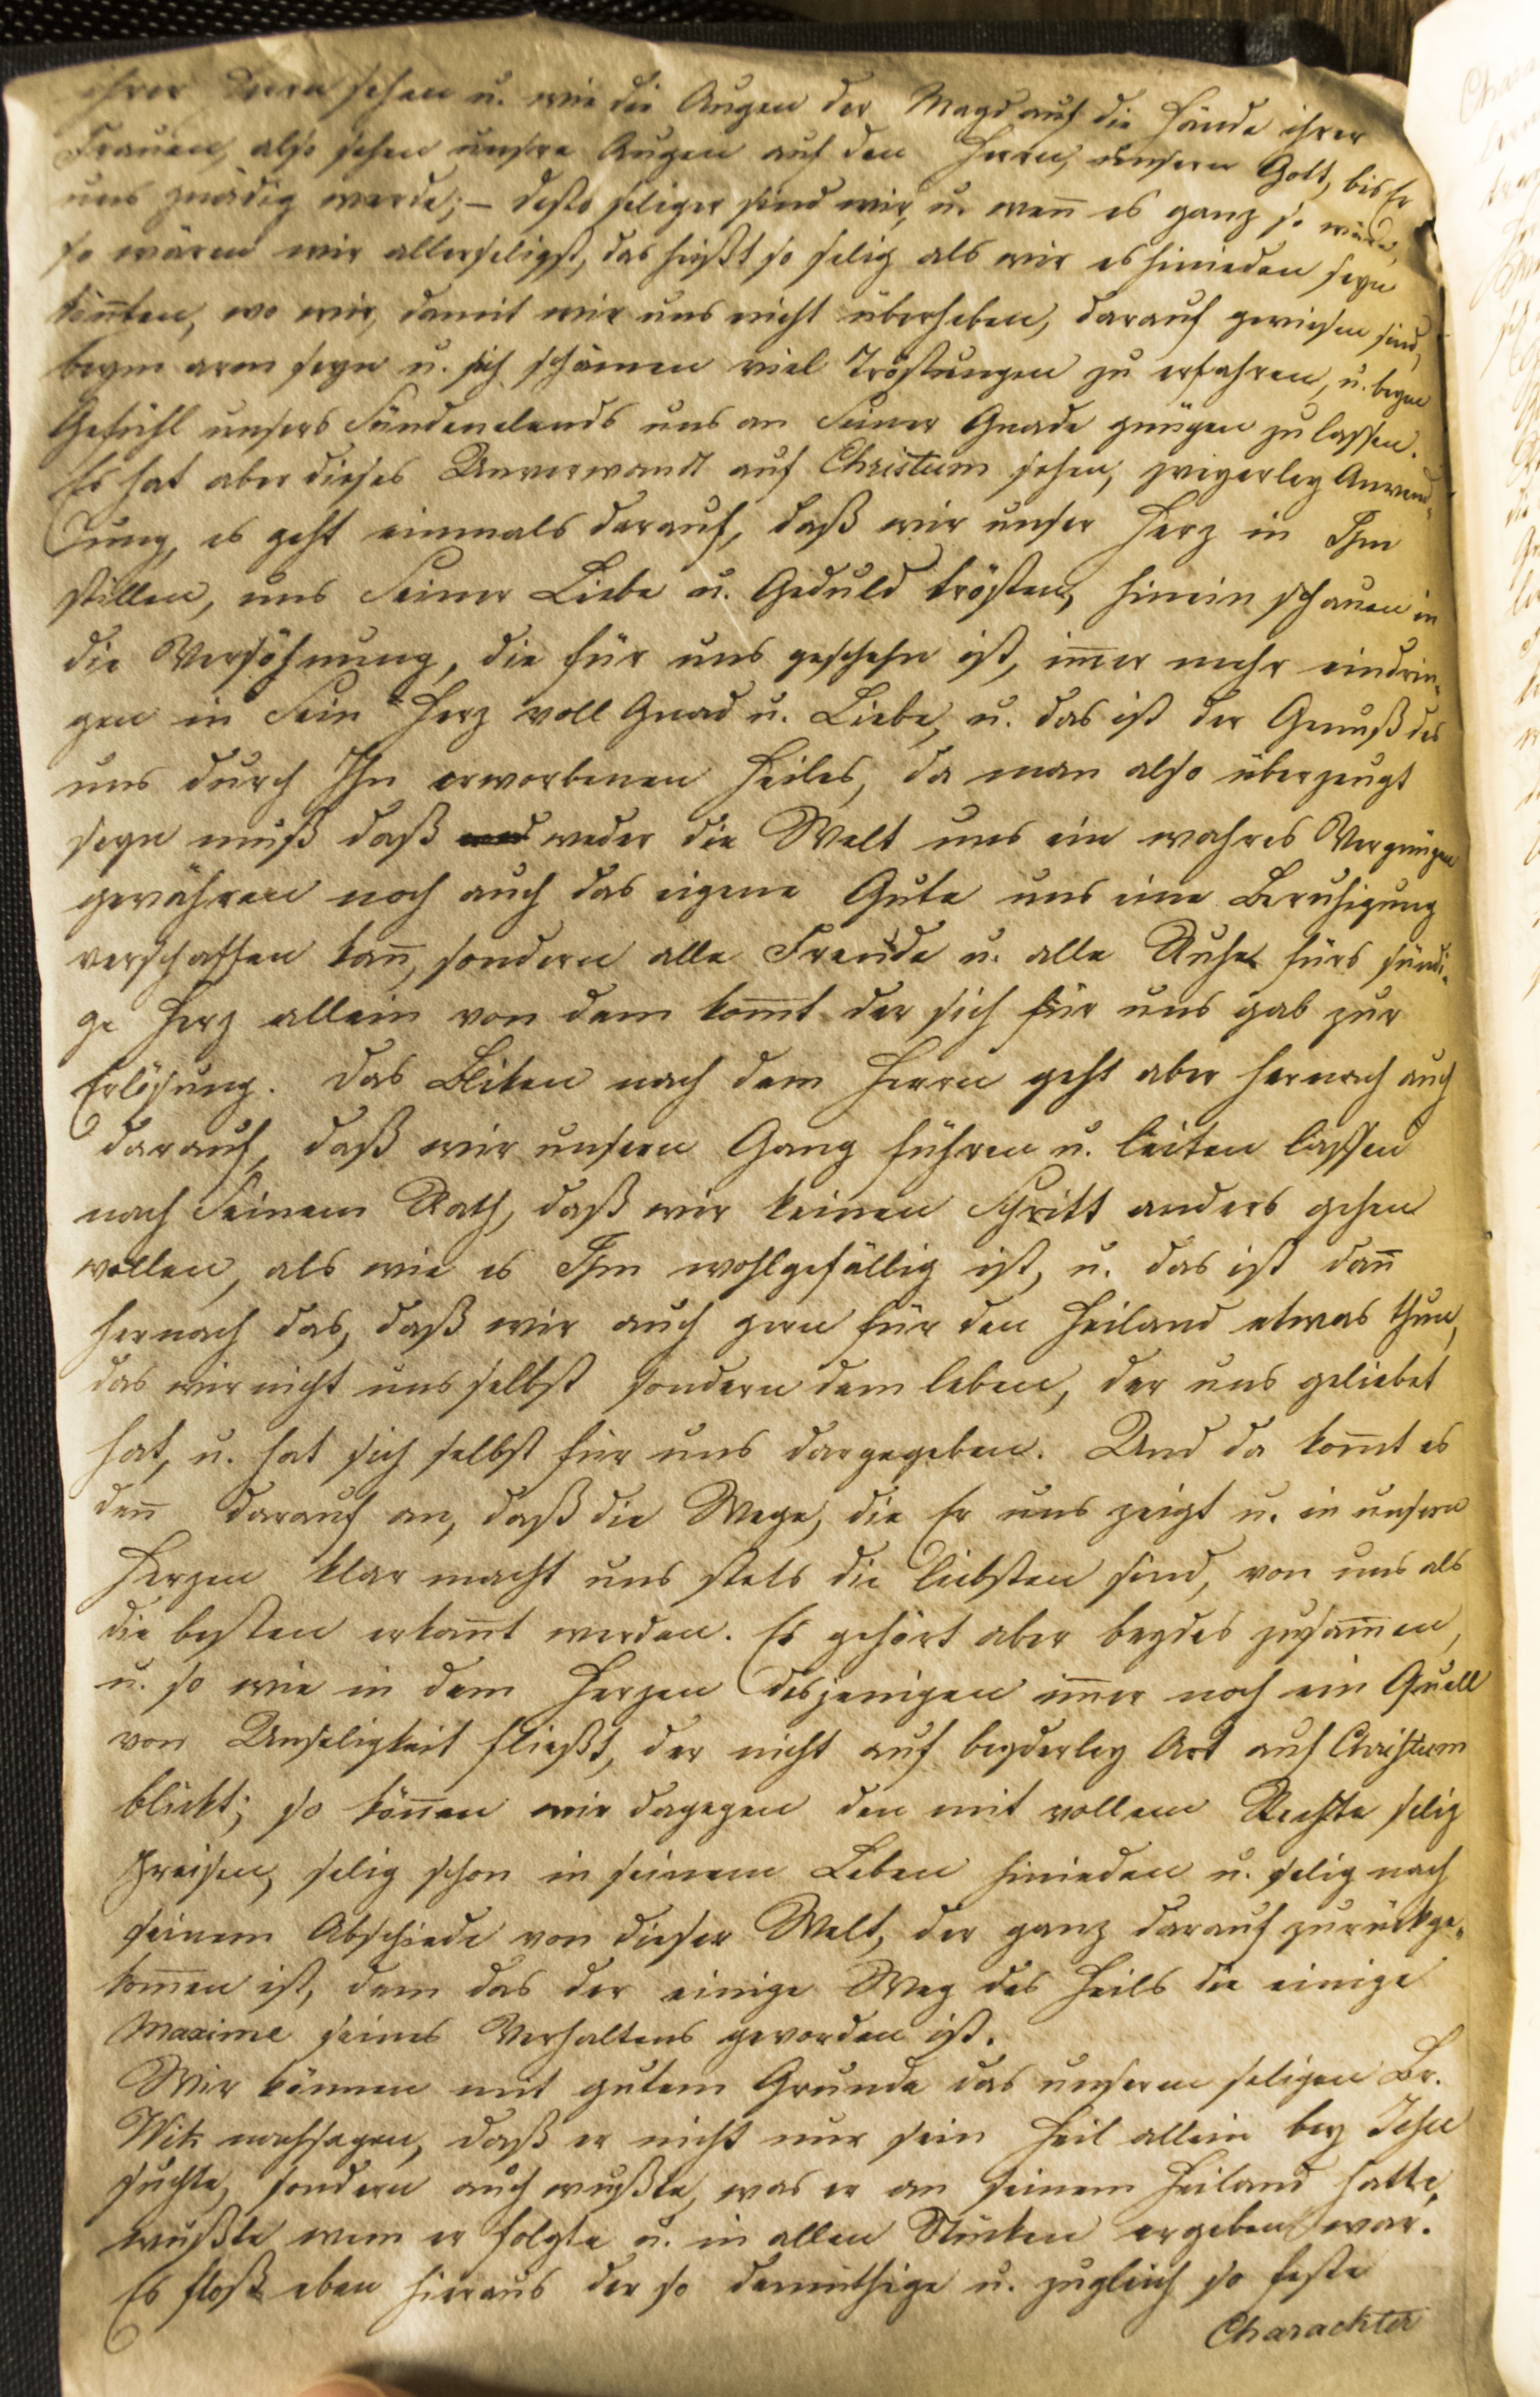 ihrer Herrn sehen u. wie die Augen der Magd auf die Hände ihrer
Frauen, also sehen unsre Augen auf den Herrn, unsern Gott, bis Er
uns gnädig werde; – desto seliger sind wir, u. wen̄ es ganz so wäre,
so wären wir allerseligst, das heißt so selig als wir es hinieden seyn
kön̄ten, wo wir, damit wir uns nicht überheben, darauf gewiesen sind,
beym arm seyn u. sich schämen viel Tröstungen zu erfahren, u. beym
Gefühl unsers Sündenelends uns an Seiner Gnade genügen zu lassen.
Es hat aber dieses Unverwandt auf Christum sehen, zweyerley Anwend-
dung, es geht einmals darauf, daß wir unser Herz in Ihm
stillen, uns Seiner Liebe u. Geduld trösten, hinein schauen in
die Versöhnung, die für uns geschehn ist, im̄er mehr eindrin-
gen in Sein Herz voll Gnad u. Liebe, u. das ist der Genuß des
uns durch Ihn erworbenen Heiles, da man also überzeugt
seyn muß daß weder die Welt uns ein wahres Vergnügen
gewähren noch auch das eigene Gute uns eine Beruhigung
verschaffen kan̄, sondern alle Freude u. alle Ruhe fürs sündi-
ge Herz allein von dem kom̄t der sich für uns gab zur
Erlösung. Das Bliken nach dem Herrn geht aber hernach auch
darauf, daß wir unsern Gang führen u. leiten lassen
nach Seinem Rath, daß wir keinen Schritt anders gehen
wollen, als wie es Ihm wohlgefällig ist, u. das ist dan̄
hernach das, daß wir auch gern für den Heiland etwas thun,
das wir nicht uns selbst sondern dem leben, der uns geliebet
hat, u. hat sich selbst für uns dargegeben. Und da kom̄t es
den̄ darauf an, daß die Wege, die Er uns zeigt u. in unsern
Herzen klar macht uns stets die liebsten sind, von uns als
die besten erkan̄t werden. Es gehört aber beydes zusam̄en,
u. so wie in dem Herzen desjenigen im̄er noch ein Quell
von Unseligkeit fließt, der nicht auf beyderley Art auf Christum
blickt; so kön̄en wir dagegen den mit vollem Rechte selig
preisen, selig schon in seinem Leben hinieden u. selig nach
seinem Abschiede von dieser Welt, der ganz darauf zurückge-
kom̄en ist, dem das der einige Weg des Heils die einige
Maxime seines Verhaltens geworden ist.
Wir können mit gutem Grunde das unserm seligen Br.
Wik nachsagen, daß er nicht nur sein Heil allein bey Jesu
suchte, sondern auch wußte, was er an seinem Heiland hatte,
wußte wem er folgte u. in allen Stücken ergeben war.
Es floß eben hieraus der so demüthige u. zugleich so feste
Charackter